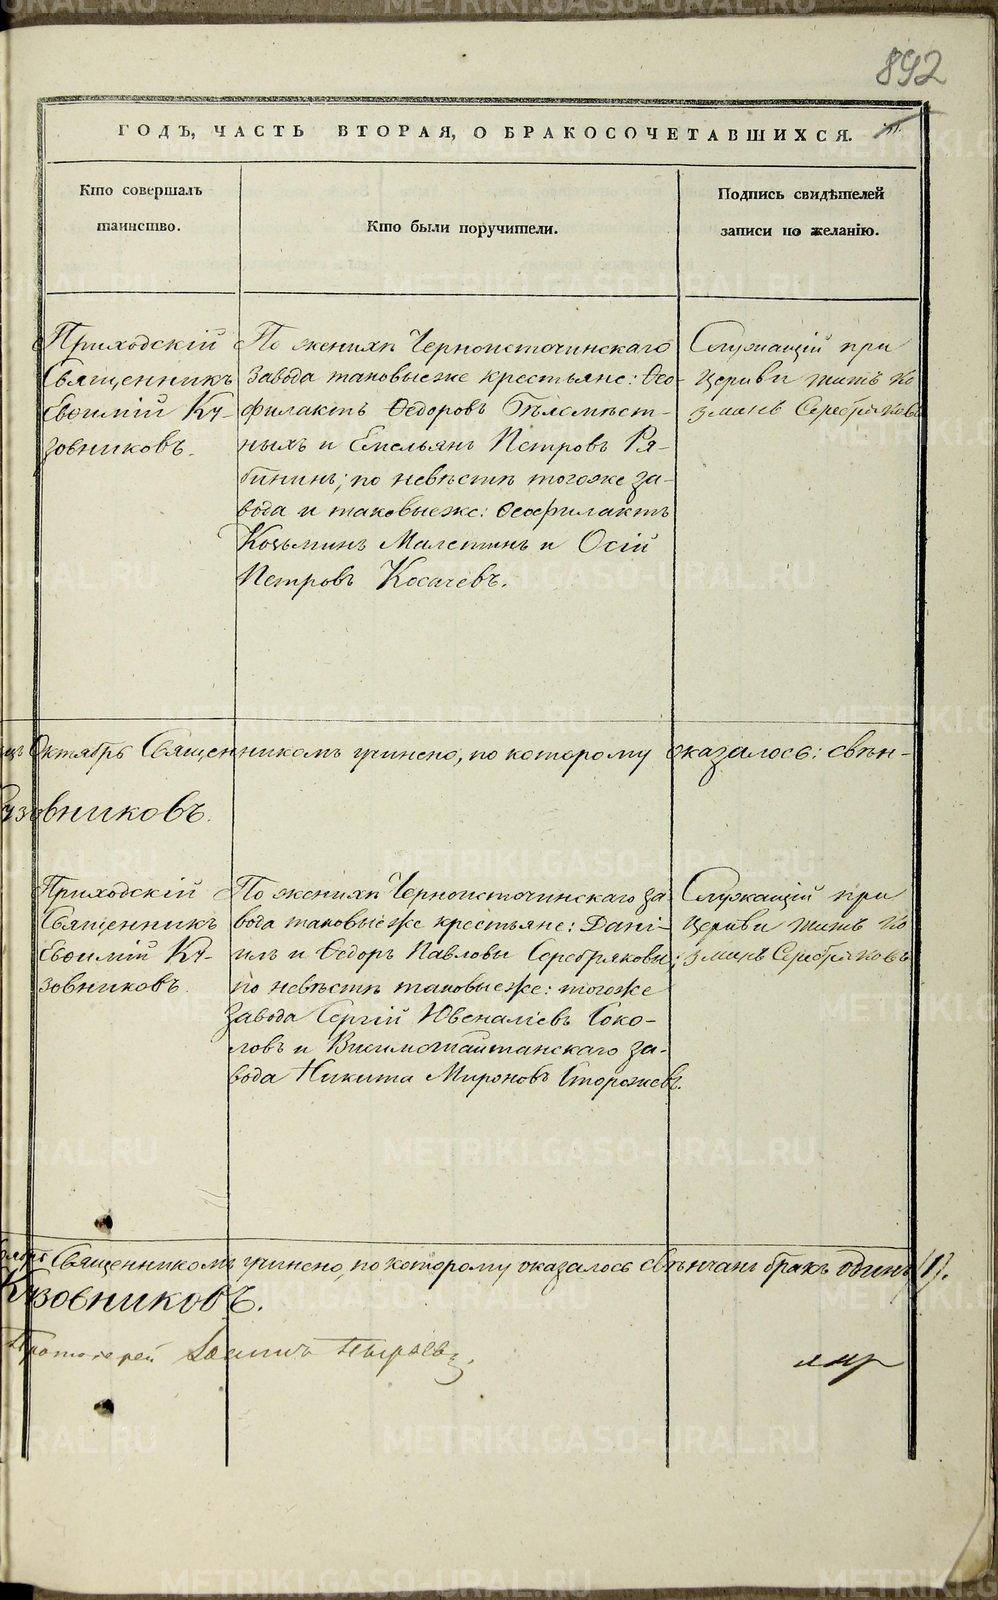 892
ГОДЪ, ЧАСТЬ ВТОРАЯ, О БРАКОСОЧЕТАВШИХСЯ.
Кто совершалъ
таинство.
Кто были поручители.
Подпись свидѣтелей
записи по желанію.
Приходскій
Священникъ
Евѳимій Ку-
зовниковъ.
По женихѣ Черноисточинскаго
завода таковыеже крестьяне: Ѳео-
филактъ Ѳедоровъ Бѣломѣст-
ныхъ и Емельянъ Петровъ Ря-
бининъ; по невѣстѣ тогоже за-
вода и таковыеже: Ѳеофилактъ
Козьминъ Малетинъ и Осій
Петровъ Косачевъ.
Служащій при
церкви
Серебряковъ
Октябрь Священникомъ учинено, по которому оказалось: свѣн-
Кузовниковъ.
Приходскій
Священникъ
Евѳимій Ку-
зовниковъ.
По женихѣ Черноисточинскаго за
вода таковыеже крестьяне: Дані-
илъ и Ѳедоръ Павловы Серебряковы;
по невѣстѣ таковыеже: тогоже
завода Сергій Ювеналіевъ Соко-
ловъ и Висимошайтанскаго за-
вода Никита Мироновъ Сторожевъ.
Служащій при
церкви
Серебряковъ
Священникомъ учинено, по которому оказалось свѣнчанъ бракъ одинъ (1).
Кузовниковъ.
Протоіерей Іоаннъ
METRIKI.GASO-URAL.RU